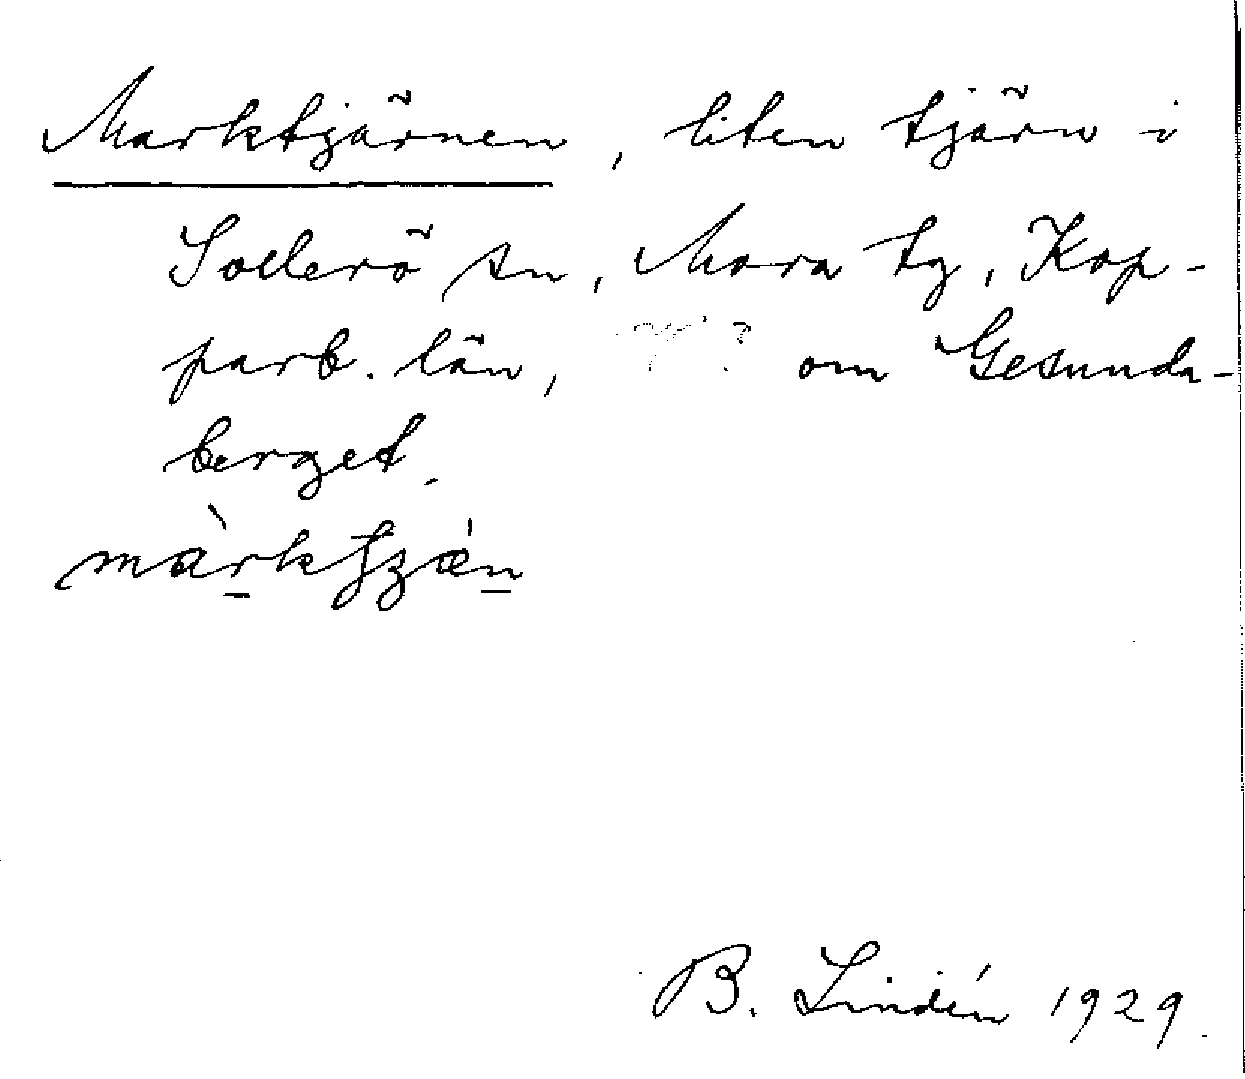 Marktjärnen, liten tjärn i
Sollerö sn, Mora tg, Kop-
parb. län, ? om Gesunda-
berget.
B. Lindén 1929.